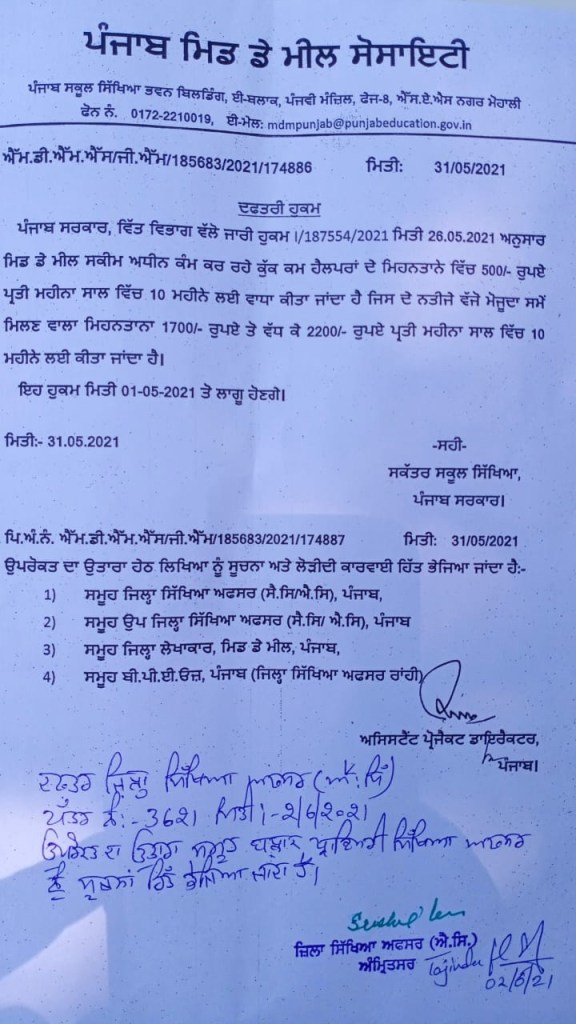 ਪੰਜਾਬ ਮਿਡ ਡੇ ਮੀਲ ਸੋਸਾਇਟੀ
ਪੰਜਾਬ ਸਕੂਲ ਸਿੱਖਿਆ ਭਵਨ ਬਿਲਡਿੰਗ, ਈ-ਬਲਾਕ, ਪੰਜਵੀ ਮੰਜ਼ਿਲ, ਫੇਜ-8, ਐੱਸ.ਏ.ਐਸ ਨਗਰ ਮੋਹਾਲੀ
ਫੋਨ ਨੰ. 0172-2210019, ਈ-ਮੇਲ: mdmpunjab@punjabeducation.gov.in
ਐੱਮ.ਡੀ.ਐੱਮ.ਐੱਸ/ਜੀ.ਐੱਮ/185683/2021/174886 ਮਿਤੀ: 31/05/2021
ਦਫਤਰੀ ਹੁਕਮ
ਪੰਜਾਬ ਸਰਕਾਰ, ਵਿੱਤ ਵਿਭਾਗ ਵੱਲੋ ਜਾਰੀ ਹੁਕਮ I/187554/2021 ਮਿਤੀ 26.05.2021 ਅਨੁਸਾਰ
ਮਿਡ ਡੇ ਮੀਲ ਸਕੀਮ ਅਧੀਨ ਕੰਮ ਕਰ ਰਹੇ ਕੁੱਕ ਕਮ ਹੈਲਪਰਾਂ ਦੇ ਮਿਹਨਤਾਨੇ ਵਿੱਚ 500/- ਰੁਪਏ
ਪ੍ਰਤੀ ਮਹੀਨਾ ਸਾਲ ਵਿੱਚ 10 ਮਹੀਨੇ ਲਈ ਵਾਧਾ ਕੀਤਾ ਜਾਂਦਾ ਹੈ ਜਿਸ ਦੇ ਨਤੀਜੇ ਵੱਜੋ ਮੋਜੂਦਾ ਸਮੇਂ
ਮਿਲਣ ਵਾਲਾ ਮਿਹਨਤਾਨਾ 1700/- ਰੁਪਏ ਤੇ ਵੱਧ ਕੇ 2200/- ਰੁਪਏ ਪ੍ਰਤੀ ਮਹੀਨਾ ਸਾਲ ਵਿੱਚ 10
ਮਹੀਨੇ ਲਈ ਕੀਤਾ ਜਾਂਦਾ ਹੈ।
ਇਹ ਹੁਕਮ ਮਿਤੀ 01-05-2021 ਤੋ ਲਾਗੂ ਹੋਣਗੇ।
ਮਿਤੀ:- 31.05.2021
-ਸਹੀ-
ਸਕੱਤਰ ਸਕੂਲ ਸਿੱਖਿਆ,
ਪੰਜਾਬ ਸਰਕਾਰ।
ਪਿ.ਅੰ.ਨੰ. ਐੱਮ.ਡੀ.ਐੱਮ.ਐੱਸ/ਜੀ.ਐੱਮ/185683/2021/174887 ਮਿਤੀ: 31/05/2021
ਉਪਰੋਕਤ ਦਾ ਉਤਾਰਾ ਹੇਠ ਲਿਖਿਆ ਨੂੰ ਸੂਚਨਾ ਅਤੇ ਲੋੜੀਦੀ ਕਾਰਵਾਈ ਹਿੱਤ ਭੇਜਿਆ ਜਾਂਦਾ ਹੈ:-
1) ਸਮੂਹ ਜਿਲ੍ਹਾ ਸਿੱਖਿਆ ਅਫਸਰ (ਸੈ.ਸਿ/ਐ.ਸਿ), ਪੰਜਾਬ,
2) ਸਮੂਹ ਉਪ ਜਿਲ੍ਹਾ ਸਿੱਖਿਆ ਅਫਸਰ (ਸੈ.ਸਿ/ ਐ.ਸਿ), ਪੰਜਾਬ
3) ਸਮੂਹ ਜਿਲ੍ਹਾ ਲੇਖਾਕਾਰ, ਮਿਡ ਡੇ ਮੀਲ, ਪੰਜਾਬ,
4) ਸਮੂਹ ਬੀ.ਪੀ.ਈ.ਓਜ਼, ਪੰਜਾਬ (ਜਿਲ੍ਹਾ ਸਿੱਖਿਆ ਅਫਸਰ ਰਾਂਹੀ)
ਅਸਿਸਟੈਂਟ ਪ੍ਰੋਜੈਕਟ ਡਾਇਰੈਕਟਰ,
ਪੰਜਾਬ।
ਦਫਤਰ ਜਿਲ੍ਹਾ ਸਿੱਖਿਆ ਅਫਸਰ (ਐ.ਸਿ)
ਪੱਤਰ ਨੰ:- 3621 ਮਿਤੀ:- 2/6/2021
ਉਪਰੋਕਤ ਦਾ ਉਤਾਰਾ ਸਮੂਹ ਬਲਾਕ ਪ੍ਰਾਇਮਰੀ ਸਿੱਖਿਆ ਅਫਸਰ
ਨੂੰ ਸੂਚਨਾ ਹਿੱਤ ਭੇਜਿਆ ਜਾਂਦਾ ਹੈ।
ਜ਼ਿਲਾ ਸਿੱਖਿਆ ਅਫਸਰ (ਐ.ਸਿ.)
ਅੰਮ੍ਰਿਤਸਰ
02/6/21